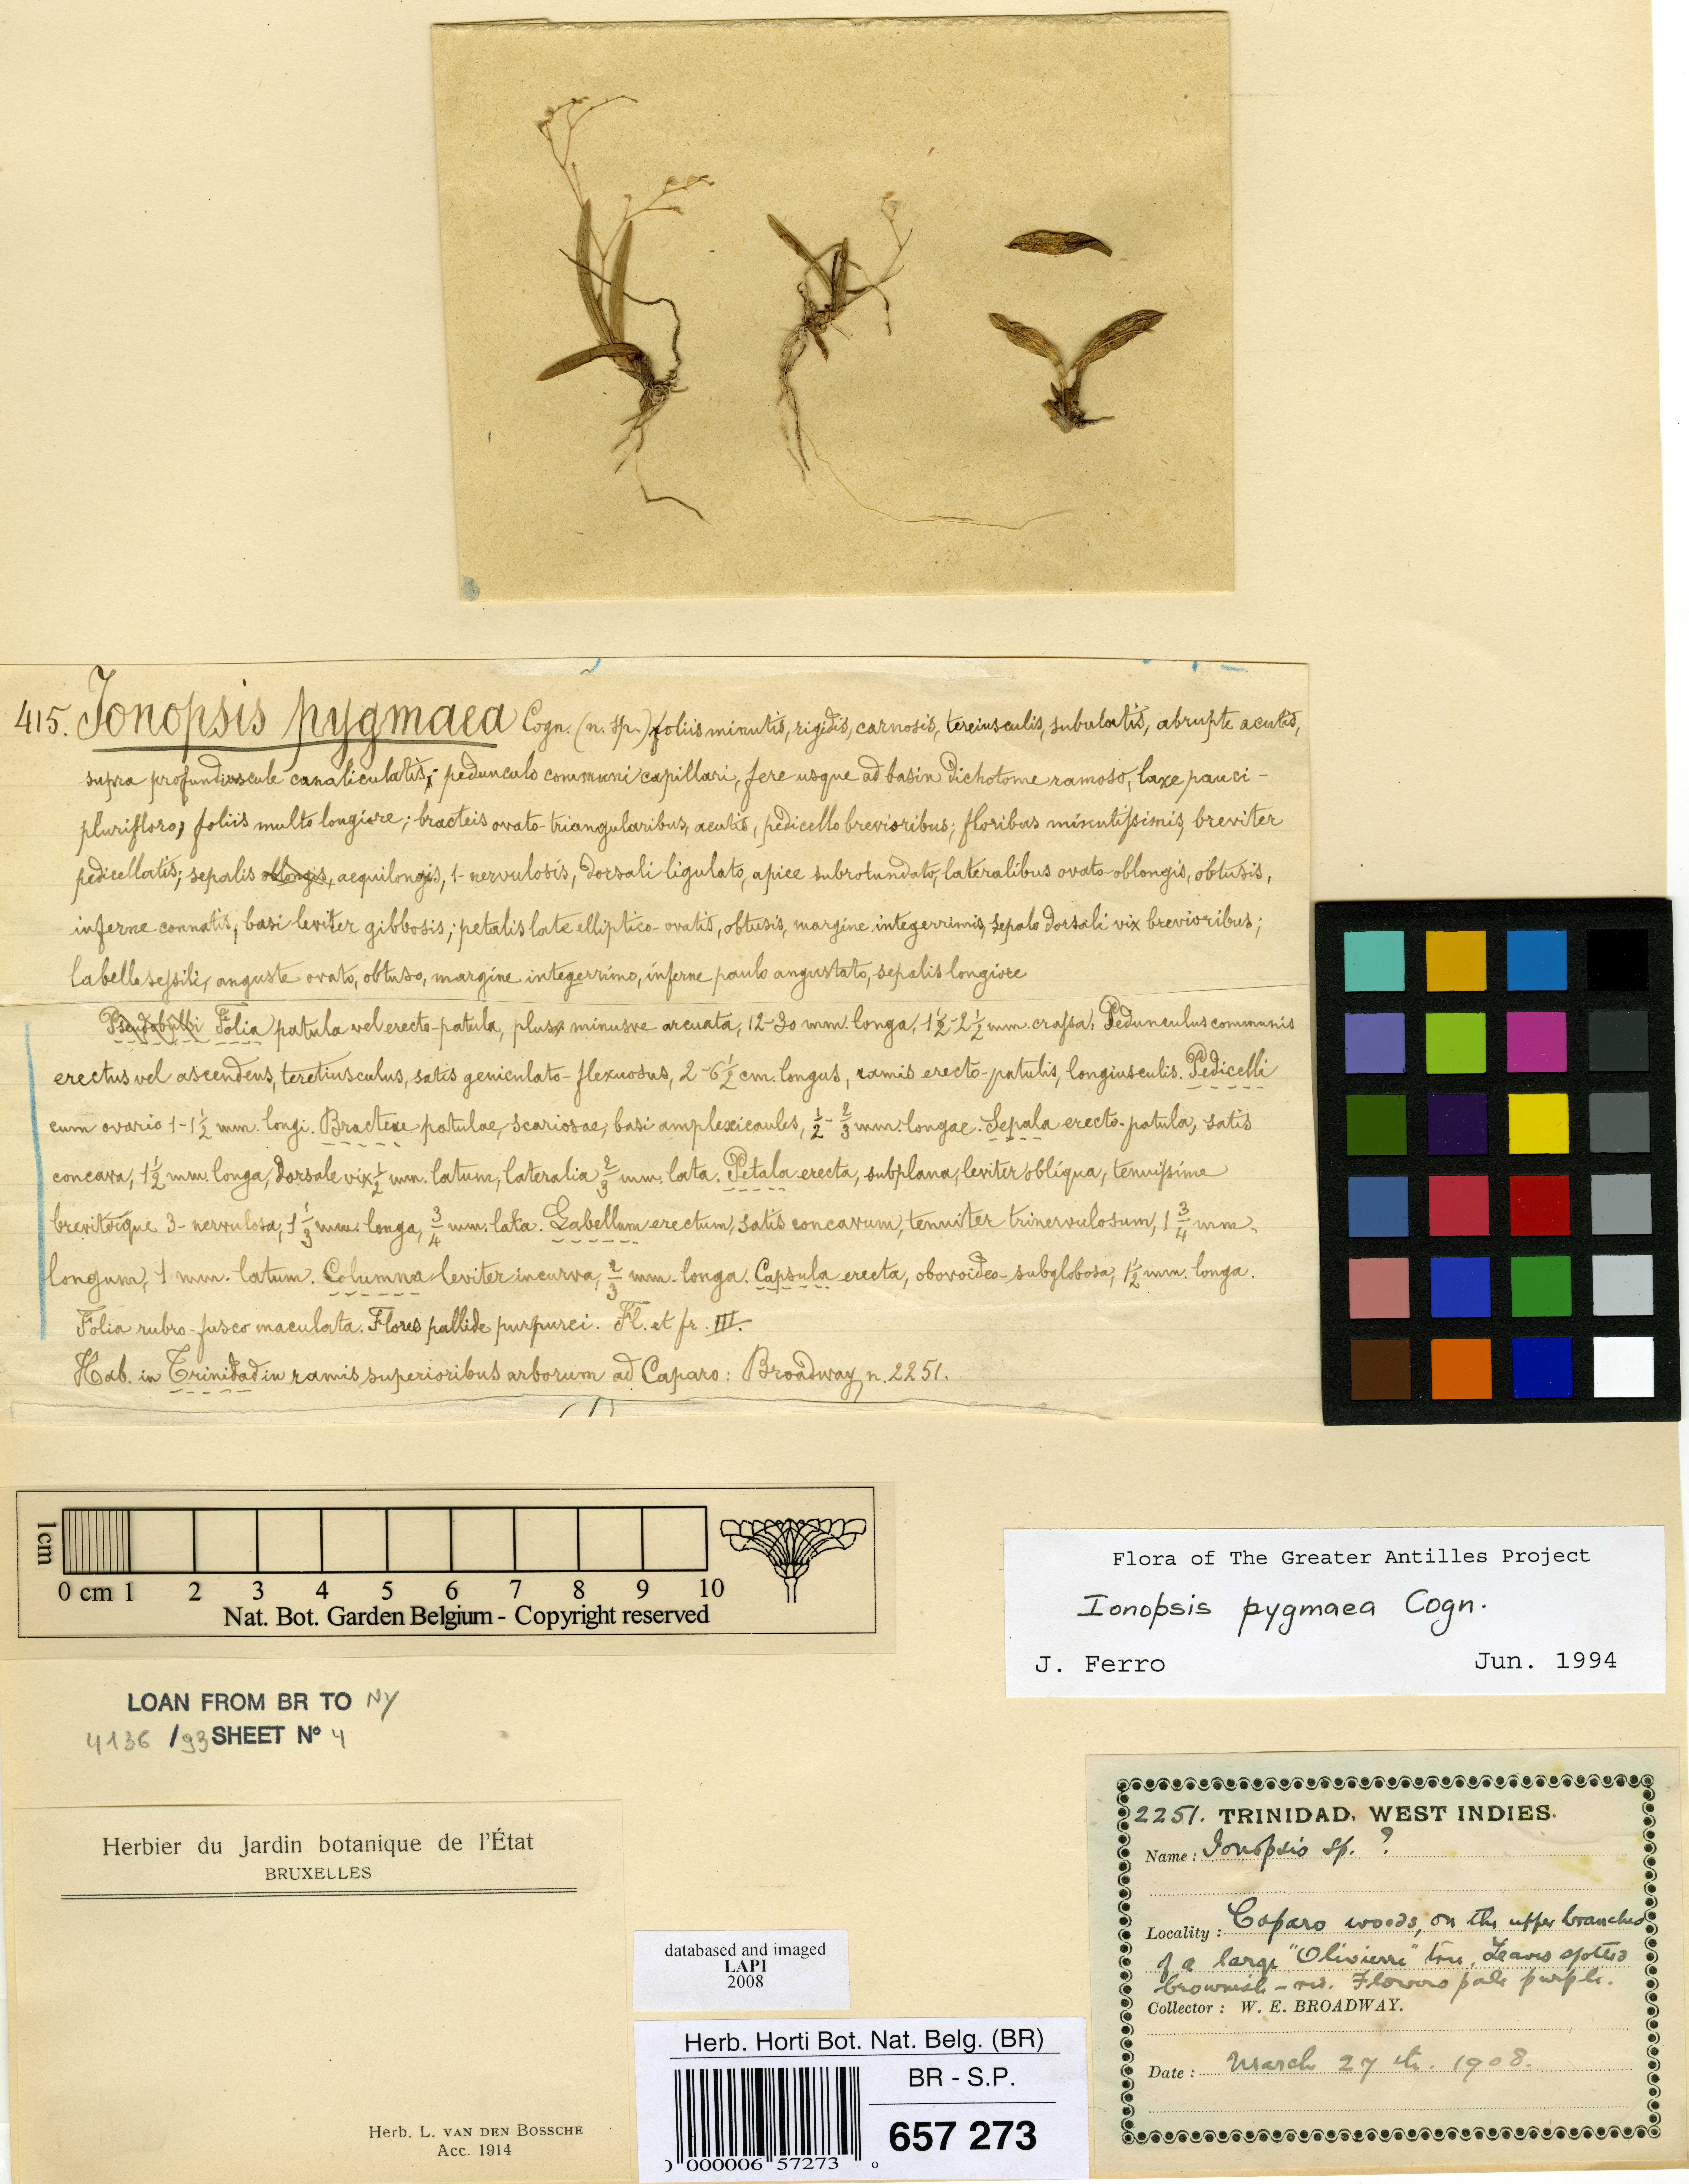 415. Ionopsis pygmaea Cogn. (n. sp.) foliis minutis, rigidis, carnosis, teretiusculis, subulatis, abrupte acutis,
supra profundiuscule canaliculatis; pedunculo communi capillari, fere usque ad basin dichotome ramoso, laxe pauci-
plurifloro, foliis multo longiore; bracteis ovato-triangularibus, acutis, pedicello brevioribus; floribus minutissimis, breviter
pedicellatis; sepalis oblongis, aequilongis, 1-nervulosis, dorsali ligulato, apice subrotundato, lateralibus ovato-oblongis, obtusis,
inferne connatis, basi leviter gibbosis; petalis late elliptico-ovatis, obtusis, margine integerrimis, sepalo dorsali vix brevioribus;
labello sessili, anguste ovato, obtuso, margine integerrimo, inferne paulo angustato, sepalis longiore
Pseudobulbi Folia patula vel erecto-patula, plus minusve arcuata, 12-30 mm. longa, 1½-2½ mm. crassa. Pedunculus communis
erectus vel ascendens, teretiusculus, satis geniculato-flexuosus, 2-6½ cm. longus, ramis erecto-patulis, longiusculis. Pedicelli
cum ovario 1-1½ mm. longi. Bracteae patulae, scariosae, basi amplexicaules, ½-⅔ mm. longae. Sepala erecto-patula, satis
concava, 1½ mm. longa, dorsale vix ½ mm. latum, lateralia ⅔ mm. lata. Petala erecta, subplana, leviter obliqua, tenuissime
breviterque 3-nervulosa, 1⅓ mm. longa, ¾ mm. lata. Labellum erectum, satis concavum, tenuiter trinervulosum, 1¾ mm.
longum, 1 mm. latum. Columna leviter incurva, ⅔ mm. longa. Capsula erecta, obovoideo-subglobosa, 1½ mm. longa.
Folia rubro-fusco maculata. Flores pallide purpurei. Fl. et fr. III.
Hab. in Trinidad in ramis superioribus arborum ad Caparo: Broadway n. 2251.
1cm
0 cm 1 2 3 4 5 6 7 8 9 10
Nat. Bot. Garden Belgium - Copyright reserved
Flora of The Greater Antilles Project
Ionopsis pygmaea Cogn.
J. Ferro Jun. 1994
LOAN FROM BR TO NY
4136 /93 SHEET N° 4
Herbier du Jardin botanique de l'État
BRUXELLES
Herb. L. VAN DEN BOSSCHE
Acc. 1914
databased and imaged
LAPI
2008
Herb. Horti Bot. Nat. Belg. (BR)
BR - S.P.
657 273
000006 57273
2251. TRINIDAD, WEST INDIES.
Name: Ionopsis sp. ?
Locality: Caparo woods, on the upper branches
of a large "Olivierri" tree. Leaves spotted
brownish-red. Flowers pale purple.
Collector: W. E. BROADWAY.
Date: March 27th. 1908.